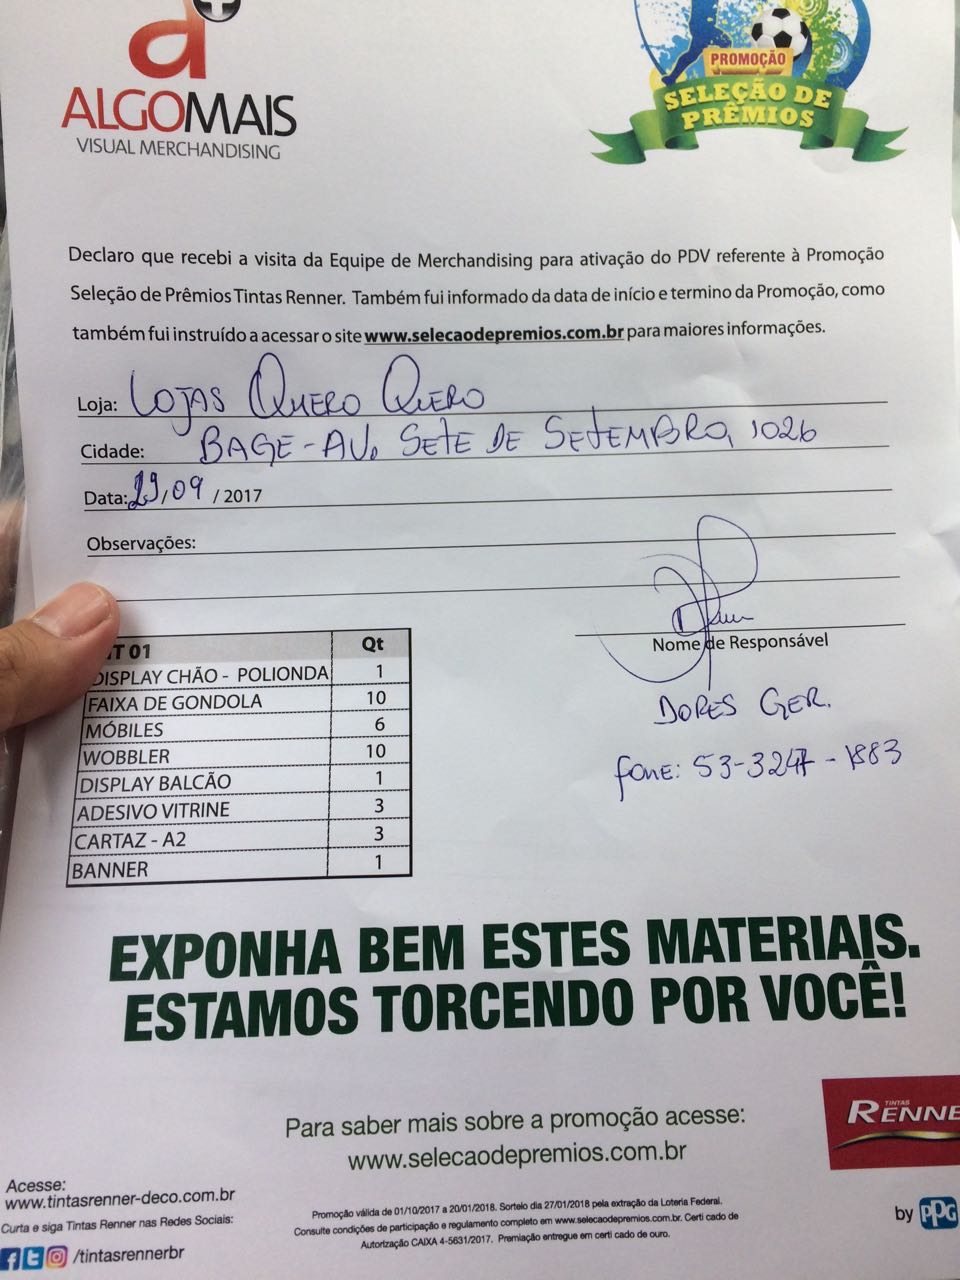 ALGOMAIS
VISUAL MERCHANDISING
PROMOÇÃO
SELEÇÃO DE
PRÊMIOS
Declaro que recebi a visita da Equipe de Merchandising para ativação do PDV referente à Promoção
Seleção de Prêmios Tintas Renner. Também fui informado da data de início e termino da Promoção, como
também fui instruído a acessar o site www.selecaodepremios.com.br para maiores informações.
Loja: LOJAS QUERO QUERO
Cidade: BAGE-AV. SETE DE SETEMBRO, 1026
Data: 29/09 / 2017
Observações:
Nome de Responsável
DORES GER.
fone: 53-3247-1883
IT 01 Qt
DISPLAY CHÃO - POLIONDA 1
FAIXA DE GONDOLA 10
MÓBILES 6
WOBBLER 10
DISPLAY BALCÃO 1
ADESIVO VITRINE 3
CARTAZ - A2 3
BANNER 1
EXPONHA BEM ESTES MATERIAIS.
ESTAMOS TORCENDO POR VOCÊ!
Para saber mais sobre a promoção acesse:
www.selecaodepremios.com.br
TINTAS
RENNE
Acesse:
www.tintasrenner-deco.com.br
Curta e siga Tintas Renner nas Redes Sociais:
/tintasrennerbr
Promoção válida de 01/10/2017 a 20/01/2018. Sorteio dia 27/01/2018 pela extração da Loteria Federal.
Consulte condições de participação e regulamento completo em www.selecaodepremios.com.br. Certi cado de
Autorização CAIXA 4-5631/2017. Premiação entregue em certi cado de ouro.
by PPG